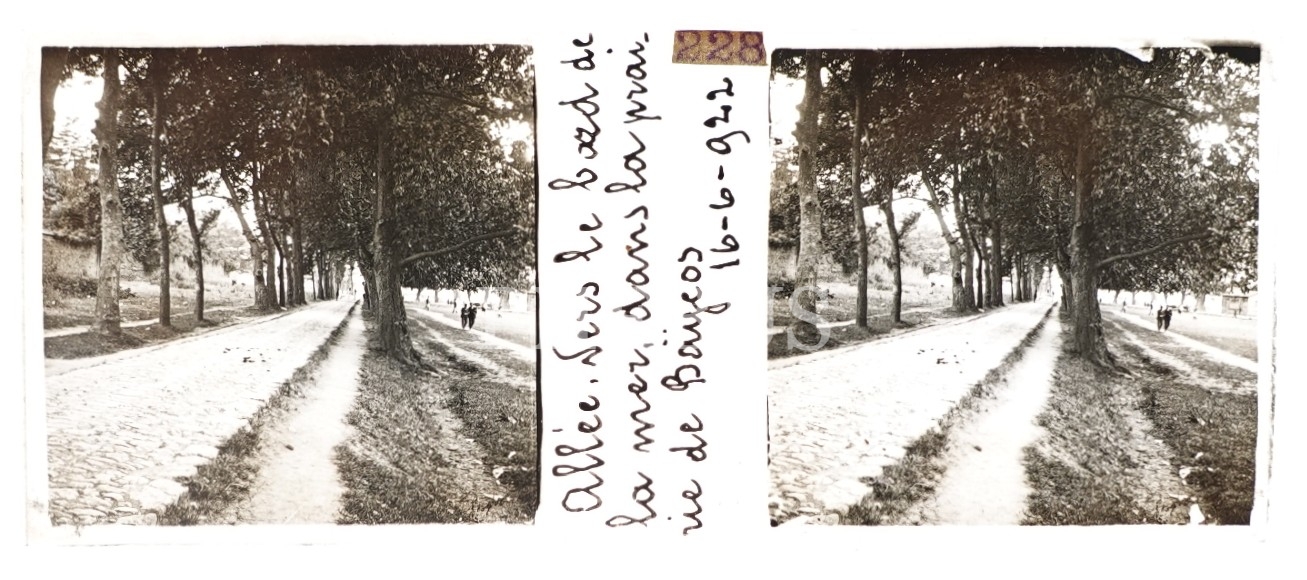 228
Allée. Vers le bord de
la mer, dans la prai-
rie de Baïjeos
16-6-922